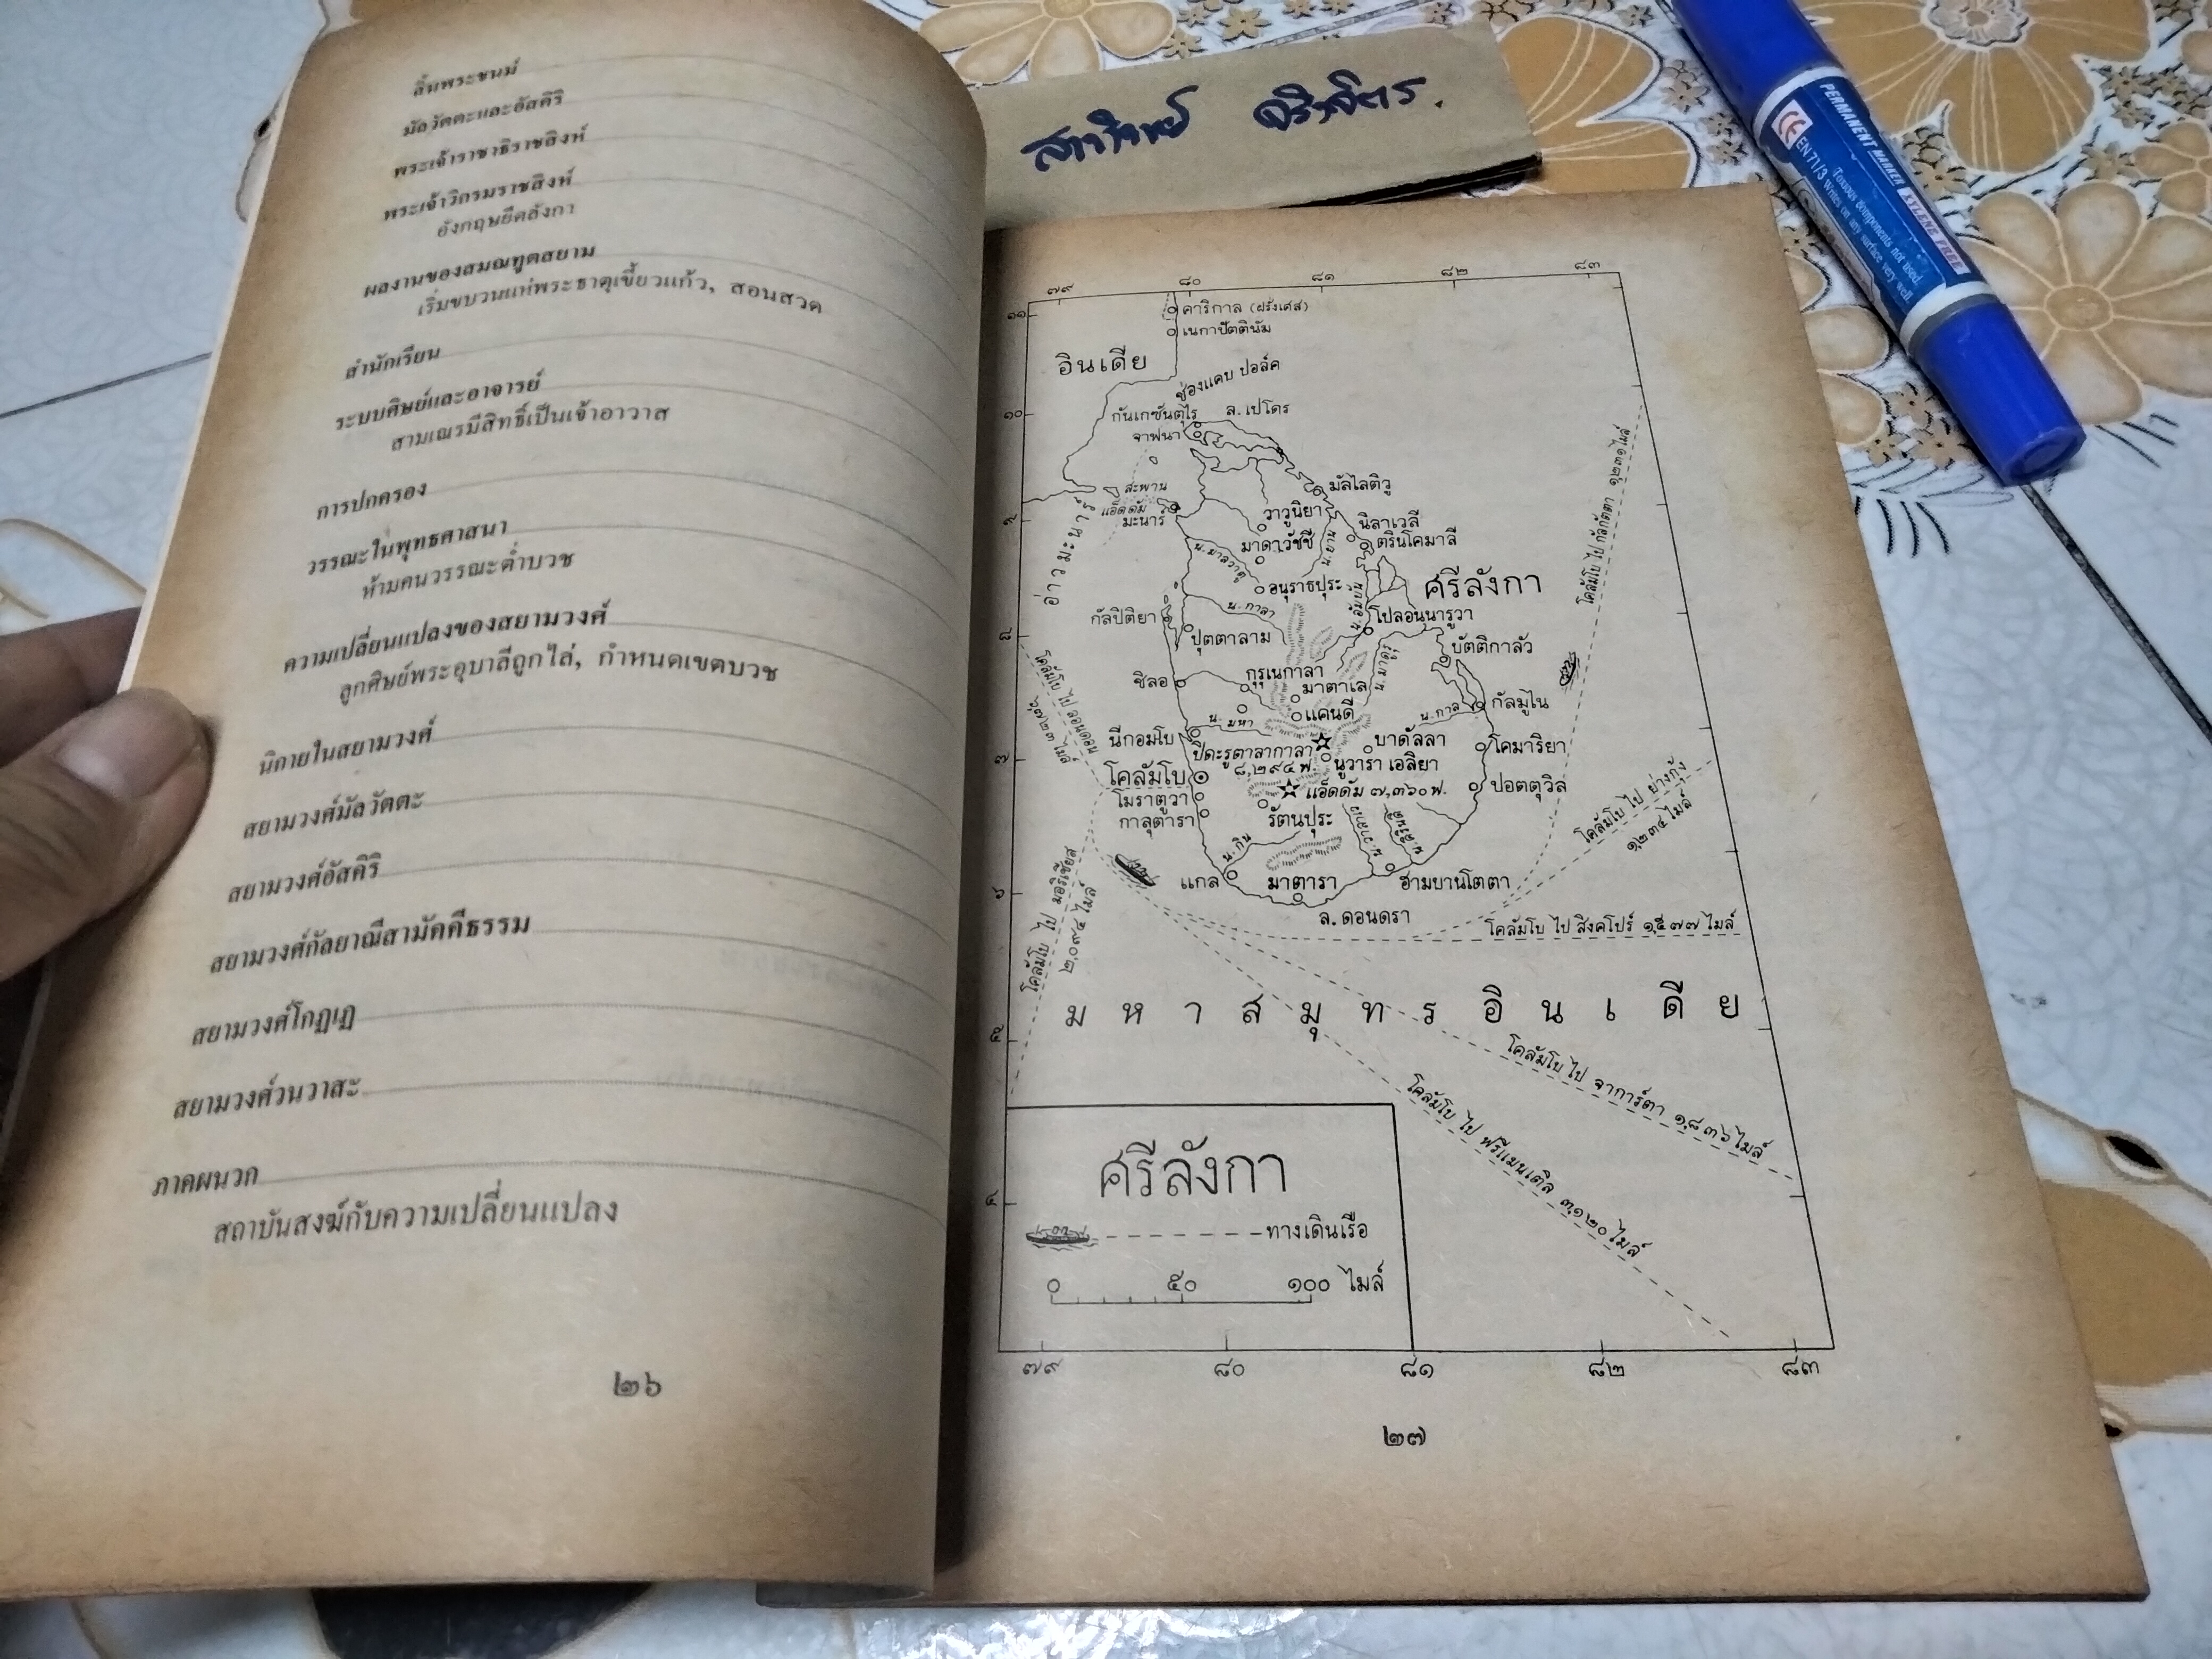 สิ้นพระชนม์
มัลวัตตะและอัสคิริ
พระเจ้าราชาธิราชสิงห์
พระเจ้าวิกรมราชสิงห์
อังกฤษยึดลังกา
ผลงานของสมณทูตสยาม
เริ่มขบวนแห่พระธาตุเขี้ยวแก้ว, สอนสวด
สำนักเรียน
ระบบศิษย์และอาจารย์
สามเณรมีสิทธิ์เป็นเจ้าอาวาส
การปกครอง
วรรณะในพุทธศาสนา
ห้ามคนวรรณะต่ำบวช
ความเปลี่ยนแปลงของสยามวงศ์
ลูกศิษย์พระอุบาลีถูกไล่, กำหนดเขตบวช
นิกายในสยามวงศ์
สยามวงศ์มัลวัตตะ
สยามวงศ์อัสคิริ
สยามวงศ์กัลยาณีสามัคคีธรรม
สยามวงศ์โกฏเฏ
สยามวงศ์วนวาสะ
ภาคผนวก
สถาบันสงฆ์กับความเปลี่ยนแปลง
๒๖
PERMANENT MARKER XYLENE FREE
CE EN71/3
Writes on any surface very well.
๗๙ ๘๐ ๘๑ ๘๒ ๘๓
๑๑
คาริกาล (ฝรั่งเศส)
เนกาปัตตินัม
อินเดีย
ช่องแคบ ปอล์ค
๑๐
กันเกซันตุไร
ล. เปโดร
จาฟนา
สะพาน
แอ็ดดัม
มะนาร์
อ่าวมะนาร์
มัลไลติวู
๙
วาวูนิยา
นิลาเวลี
มาดาวัชชี
ตรินโคมาลี
น. มาลวาตู
น. ยาน
อนุราธปุระ
ศรีลังกา
น. กาลา
กัลปิติยา
โปลอนนารูวา
๘
ปุตตาลาม
บัตติกาลัว
กุรุเนกาลา
น. มาดูรุ
ชิลอ
มาตาเล
แคนดี
น. กาล
กัลมูไน
น. มหา
นีกอมโบ
ปิดะรูตาลากาลา
๘,๒๙๔ ฟ.
บาดัลลา
โคมาริยา
๗
นูวารา เอลิยา
โคลัมโบ
แอ็ดดัม ๗,๓๖๐ ฟ.
ปอตตุวิล
โมราตูวา
กาลุตารา
รัตนปุระ
น. กิน
แกล
มาตารา
ฮามบานโตตา
๖
ล. ดอนดรา
โคลัมโบ ไป กัลกัตตา ๑,๒๓๑ ไมล์
โคลัมโบ ไป ลอนดอน
โคลัมโบ ไป ย่างกุ้ง
๑,๒๓๔ ไมล์
โคลัมโบ ไป มอริเชียส
๒,๐๙๔ ไมล์
โคลัมโบ ไป สิงคโปร์ ๑,๕๗๗ ไมล์
มหาสมุทรอินเดีย
๕
โคลัมโบ ไป จาการ์ตา ๑,๘๓๖ ไมล์
โคลัมโบ ไป ฟรีแมนเติล ๓,๑๒๐ ไมล์
ศรีลังกา
๔
ทางเดินเรือ
๐ ๕๐ ๑๐๐ ไมล์
๗๙ ๘๐ ๘๑ ๘๒ ๘๓
๒๗